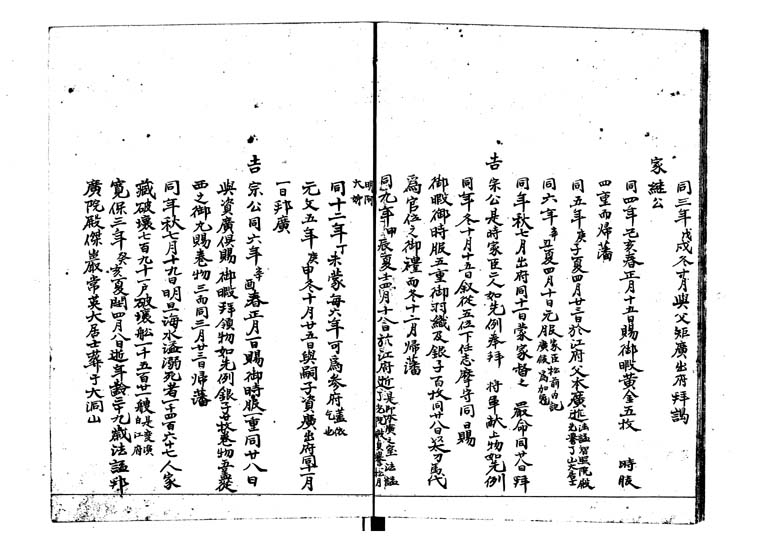 同三年戊戌冬十月與父矩廣出府拜謁
家継公
同四年己亥春正月十五日賜御暇黄金五枚 時服
四重而帰藩
同五年庚子夏四月廿三日於江府父本廣逝
同六年辛丑夏四月十日元服
同年秋七月出府同十一日蒙家督之 嚴命同廿八日拜
吉宗公是時家臣二人如先例奉拜 将軍献上物如先例
同年冬十月十五日叙從五位下任志摩守同日賜
御暇御時服五重御羽織及銀子百枚同廿八日以太刀馬代
為官位之御禮而冬十二月帰藩
同九年甲辰夏壬四月十八日於江府逝
同十二年丁未蒙毎六年可為参府
元文五年庚申冬十月廿五日與嗣子資廣出府同年十一月
一日邦廣
吉宗公同六年辛酉春正月一日賜御時服一重同廿八日
與資廣倶賜御暇拜領物如先例銀子廿枚巻物五從
西之御丸賜巻物三而同三月廿三日帰藩
同年秋七月十九日明旦海水溢溺死者一千四百六十七人家
藏破壊七百九十一戸破壊舩一千五百廿一艘
寛保三年癸亥夏閏四月八日逝年齢三十九歳法諡邦
廣院殿傑巌常英大居士葬于大洞山